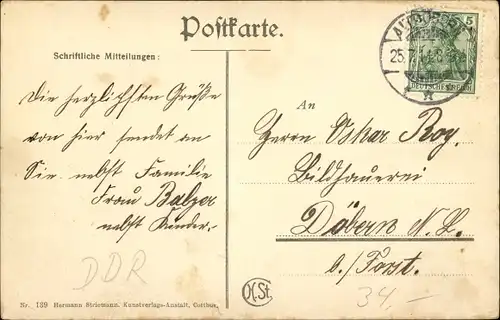 Postkarte.
Schriftliche Mitteilungen:
Die herzlichsten Grüße
von hier sendet an
Sie nebst Familie
Frau Balzer
nebst Kinder.
DDR
Nr. 139 Hermann Striemann, Kunstverlags-Anstalt, Cottbus.
5
DEUTSCHES REICH
25.7.
An
Herrn Oskar Roy,
Bildhauerei
Döbern N. L.
b./Forst.
H.St
34,-